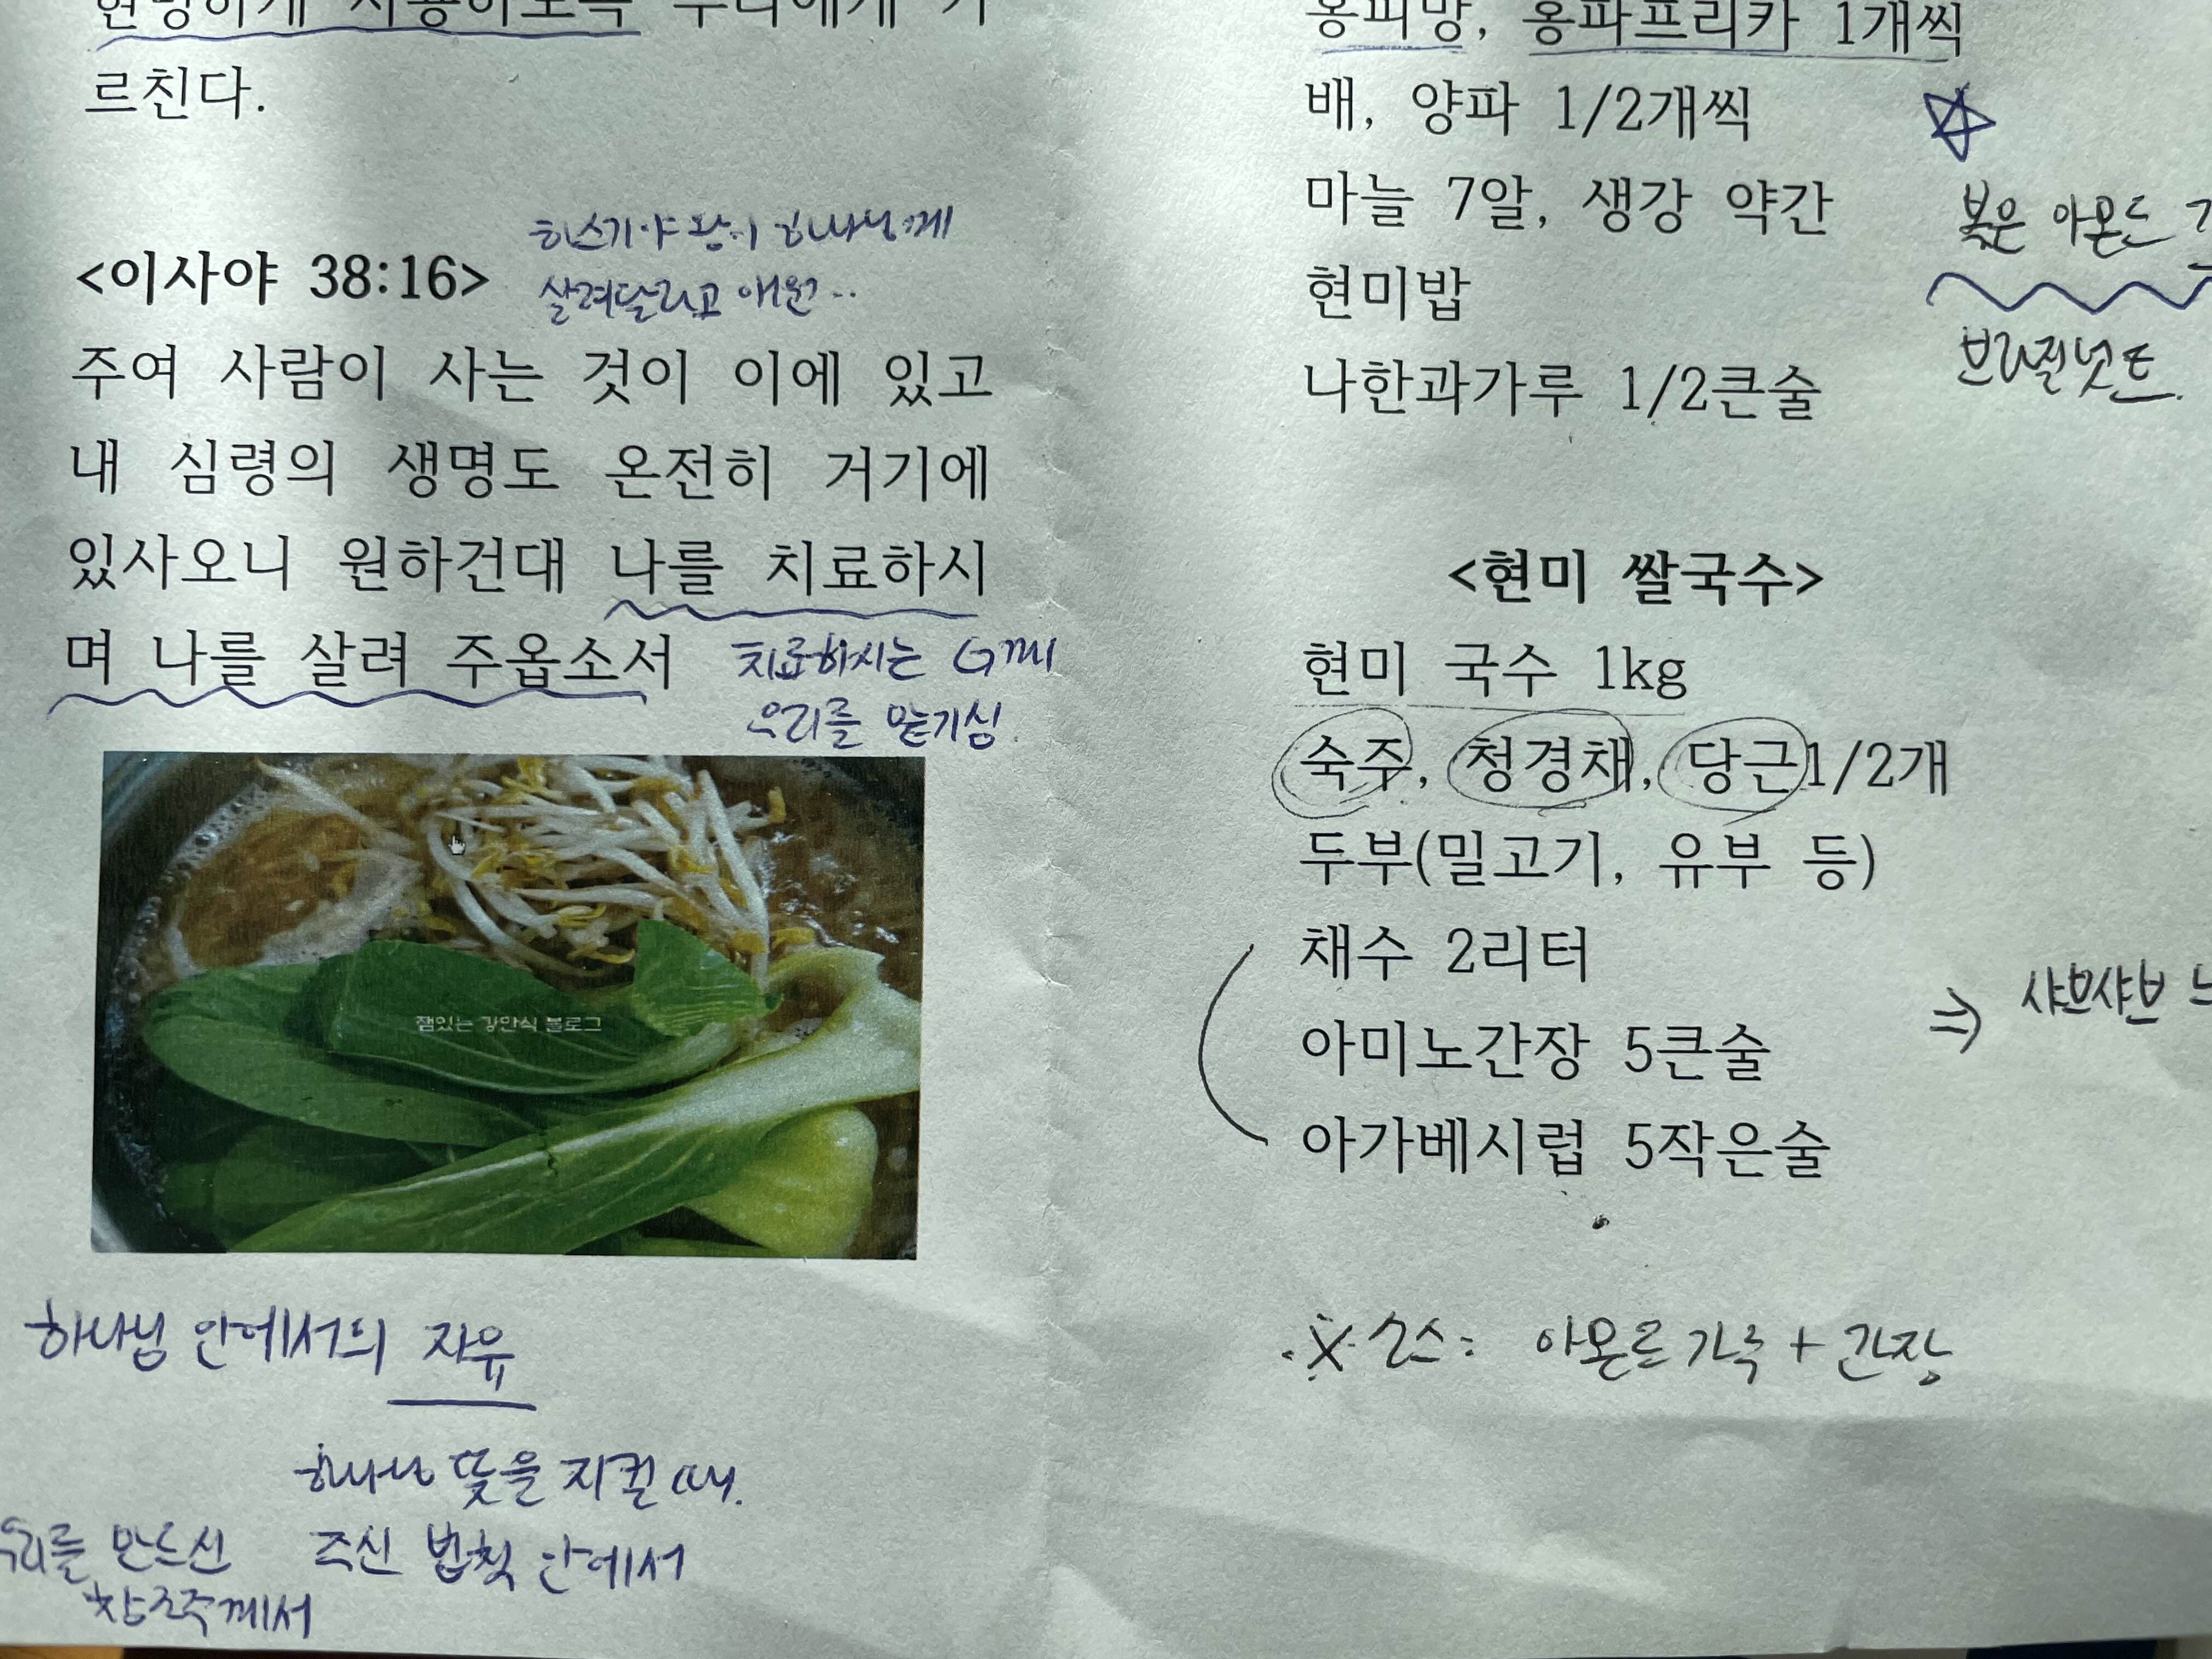 현명하게 사용하도록 우리에게 가
르친다.
<이사야 38:16>
히스기야 왕이 하나님께
살려달라고 애원..
주여 사람이 사는 것이 이에 있고
내 심령의 생명도 온전히 거기에
있사오니 원하건대 나를 치료하시
며 나를 살려 주옵소서
치료하시는 G께
우리를 맡기심
잼있는 강안식 블로그
하나님 안에서의 자유
하나님 뜻을 지킬 때.
우리를 만드신 주신 법칙 안에서
창조주께서
홍피망, 홍파프리카 1개씩
배, 양파 1/2개씩
마늘 7알, 생강 약간
현미밥
나한과가루 1/2큰술
볶은 아몬드
브라질넛트.
<현미 쌀국수>
현미 국수 1kg
숙주, 청경채, 당근1/2개
두부(밀고기, 유부 등)
채수 2리터
아미노간장 5큰술
아가베시럽 5작은술
⇒ 샤브샤브
※ 소스: 아몬드가루 + 간장